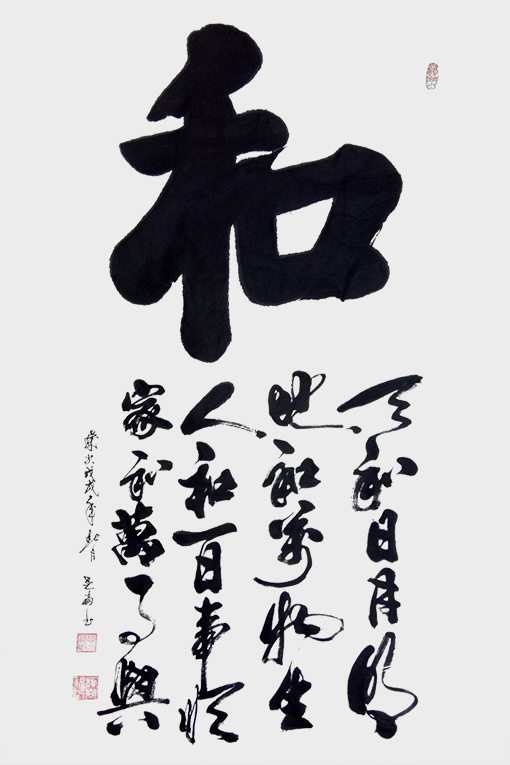 和
天和日月明
地和萬物生
人和百事順
家和萬事興
歲次戊戌年秋月